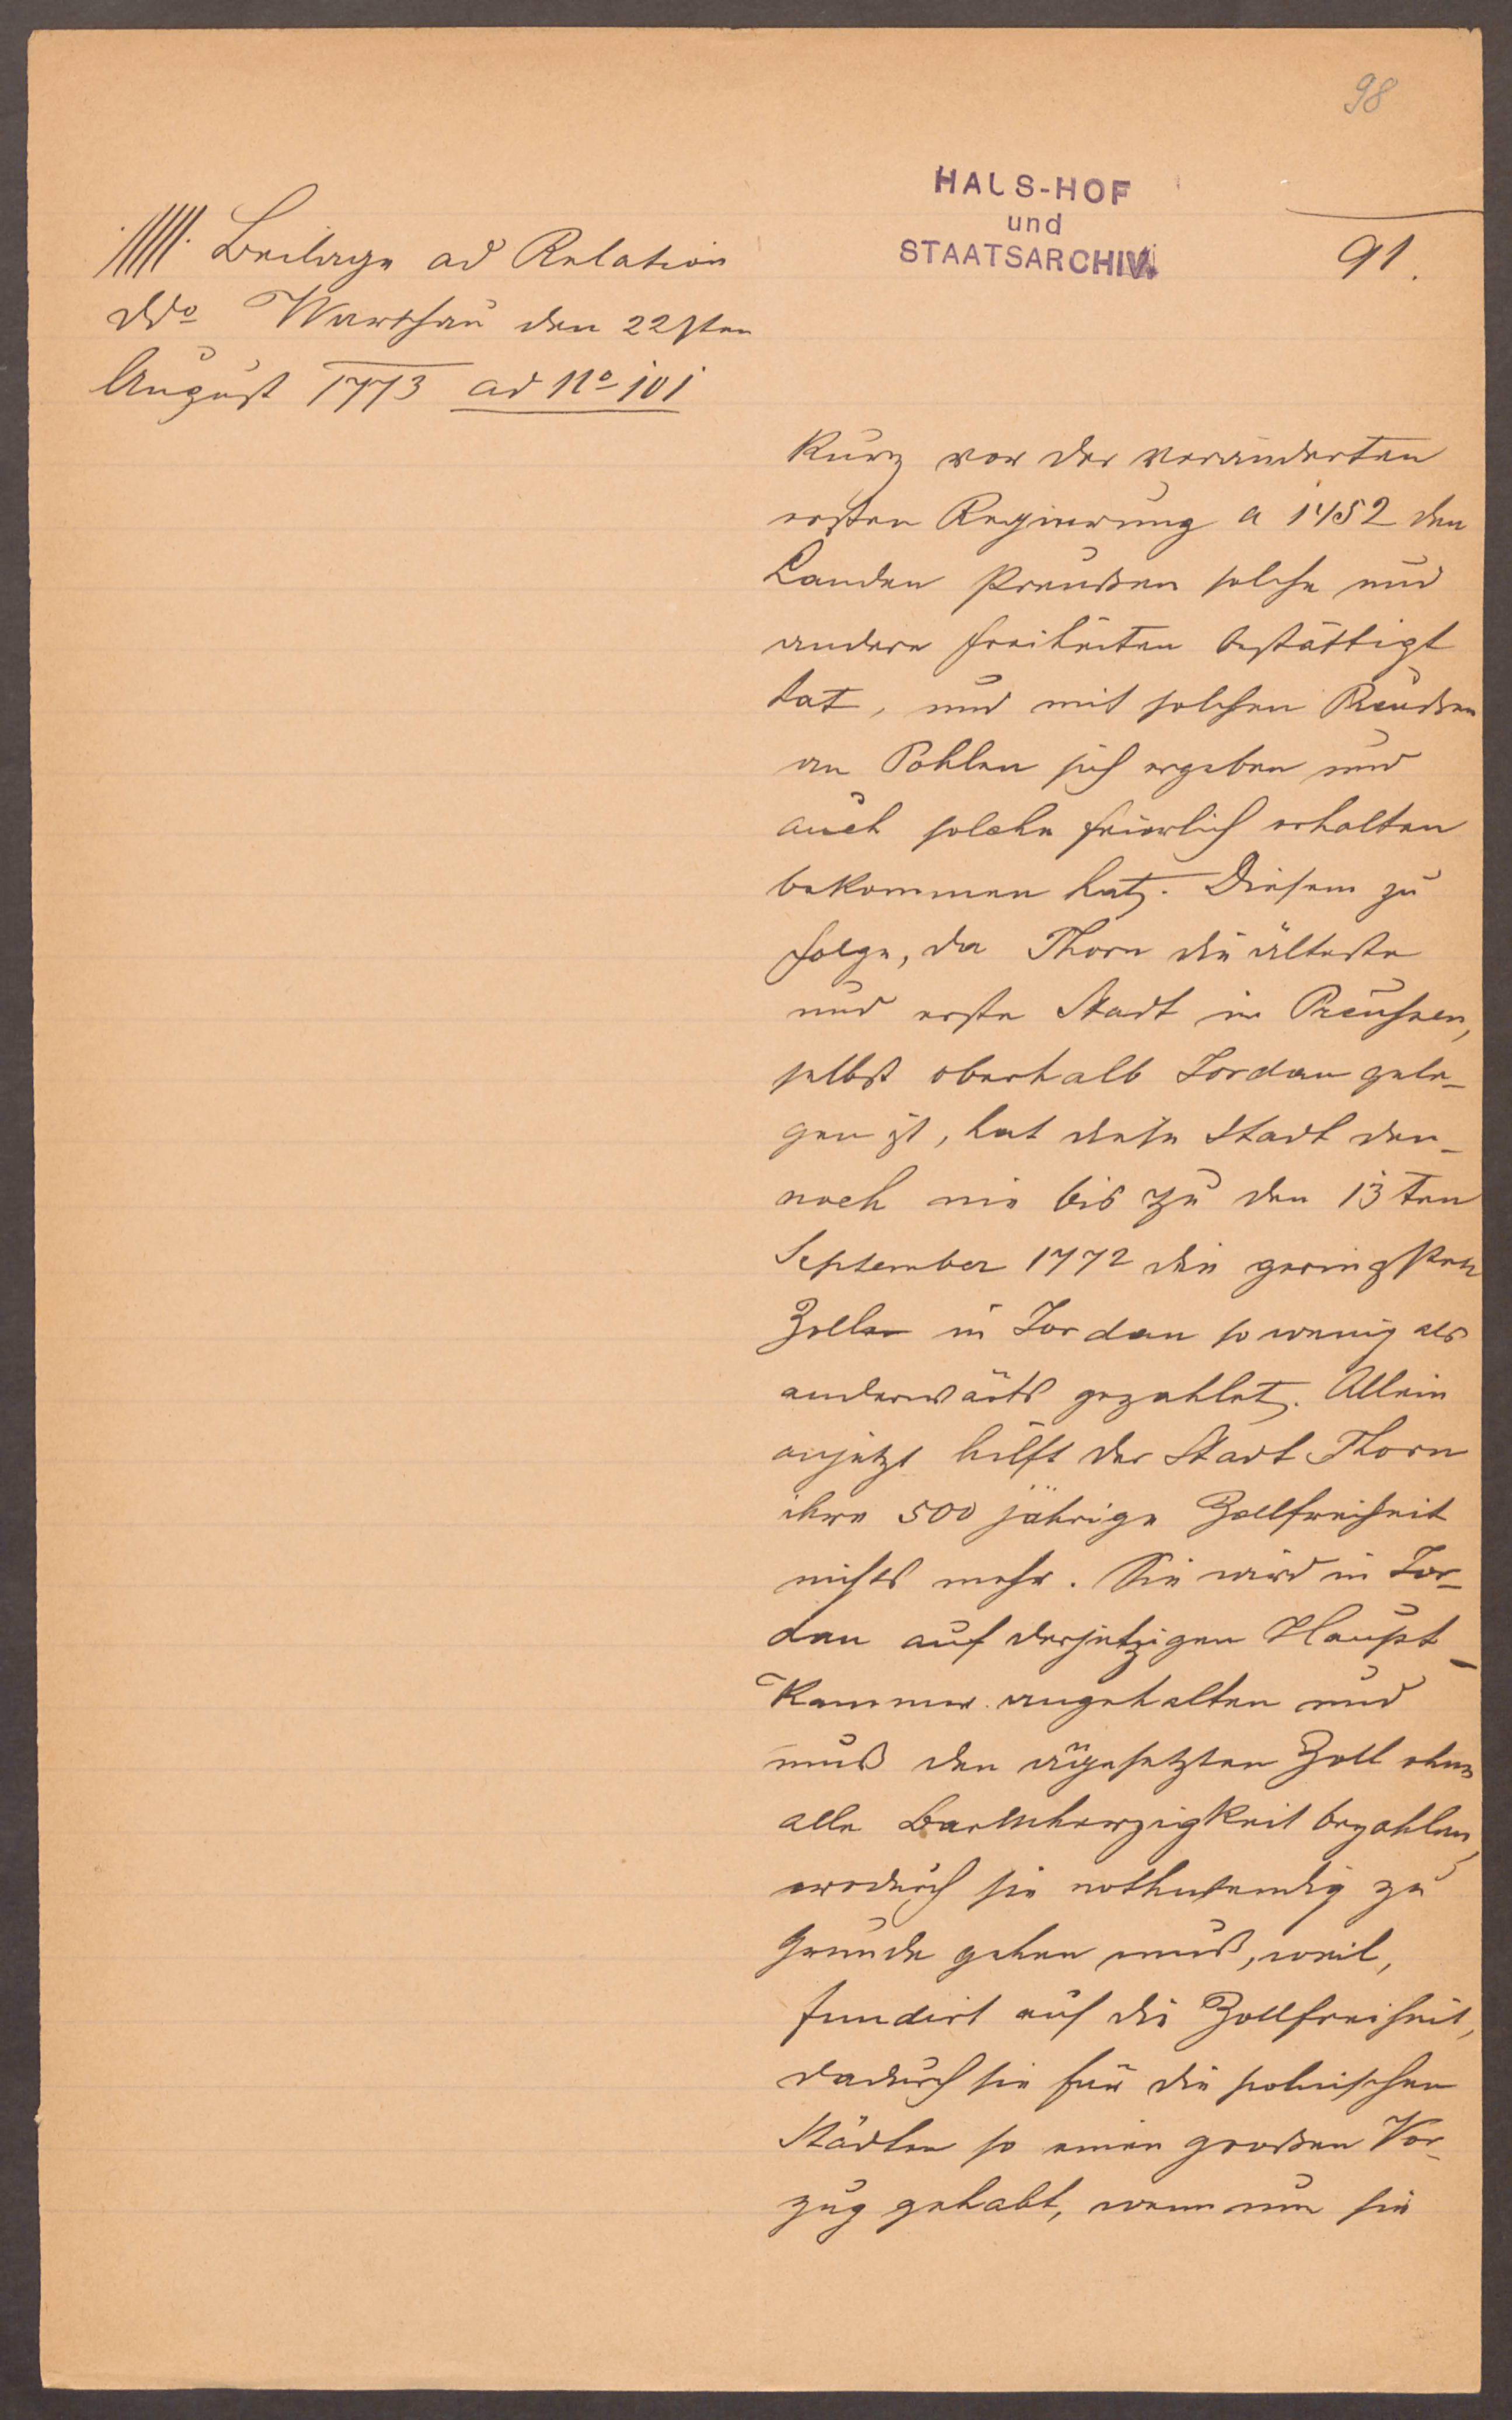 98
HAUS-HOF
und
STAATSARCHIV.
91.
Beilage ad Relation
ddo Warschau den 22sten
August 1773 ad No 101
Kurz vor der veränderten
ersten Regierung a 1452 den
Landen Preußen solche und
andere Freiheiten bestättigt
hat, und mit solchen Preußen
an Pohlen sich ergeben und
auch solche feierlich erhalten
bekommen hat. Diesem zu
Folge, da Thorn die älteste
und erste Stadt in Preussen,
selbst oberhalb Fordan gele-
gen ist, hat diese Stadt den-
noch nie bis zu den 13ten
September 1772 die geringsten
Zölle in Fordan so wenig als
anderwärts gezahlet. Allein
anjetzt hilft der Stadt Thorn
ihre 500 jährige Zollfreiheit
nichts mehr. Sie wird in For-
dan auf der jetzigen Haupt-
Kammer angehalten und
muß den gesetzten Zoll ohne
alle Barmherzigkeit bezahlen,
wodurch sie nothwendig zu
Grunde gehen muß, weil,
fundirt auf die Zollfreiheit,
dadurch sie für die polnischen
Städten so einen großen Vor-
zug gehabt, wenn nun sie